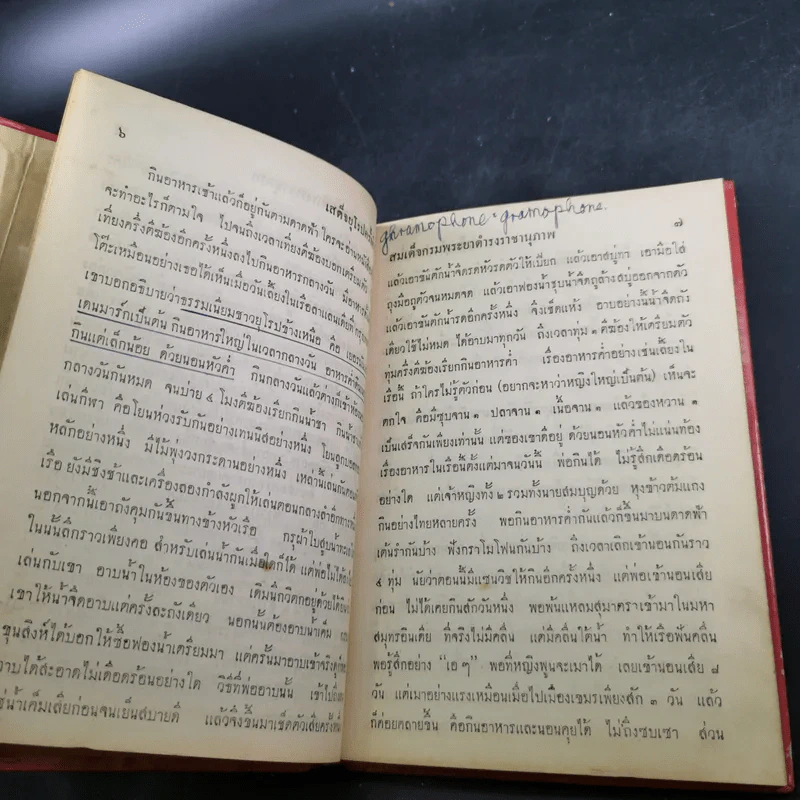 ๖
เสด็จยุโรปครั้ง
กินอาหารเช้าแล้วก็อยู่กันตามดาดฟ้า ใครจะอ่านหนังสือ
จะทำอะไรก็ตามใจ ไปจนถึงเวลาเที่ยงตีฆ้องบอกเตรียมตัว
เที่ยงครึ่งตีฆ้องอีกครั้งหนึ่งลงไปกินอาหารกลางวัน มีอาหาร
โต๊ะเหมือนอย่างเธอได้เห็นเมื่อวันเลี้ยงในเรือลาแลนเดียที่
เขาบอกอธิบายว่าธรรมเนียมชาวยุโรปข้างเหนือ คือ
เดนมาร์กเป็นต้น กินอาหารใหญ่ในเวลากลางวัน อาหารค่ำ
กินแต่เล็กน้อย ด้วยนอนหัวค่ำ กินกลางวันแล้วต่างก็เข้าห้อง
กลางวันกันหมด จนบ่าย ๔ โมงตีฆ้องเรียกกินน้ำชา
เล่นกีฬา คือโยนห่วงรับกันอย่างเทนนิสอย่างหนึ่ง โยนลูก
หลักอย่างหนึ่ง มีไม้พุ่งวงกระดานอย่างหนึ่ง เหล่านี้เล่นกัน
เรือ ยังมีชิงช้าและเครื่องลองกำลังผูกให้เล่นตอนกลางลำอีก
นอกจากนี้เอาถังคุมกันขึ้นทางข้างหัวเรือ กรุผ้าใบสูบน้ำทะเล
ในนั้นลึกราวเพียงคอ สำหรับเล่นน้ำกันเมื่อใดก็ได้ แต่พ่อไม่ได้
เล่นกับเขา อาบน้ำในห้องของตัวเอง เดิมนึกวิตกอยู่ด้วยได้
เขาให้น้ำจืดอาบแต่ครั้งละถังเดียว นอกนั้นต้องอาบน้ำเค็ม
ขุนสิงห์ได้บอกให้ซื้อฟองน้ำเตรียมมา แต่ครั้นมาอาบเข้าจริง
อาบได้สะอาดไม่เดือดร้อนอย่างใด วิธีที่พ่ออาบนั้น เข้าไป
น้ำเค็มเสียก่อนจนเย็นสบายดี แล้วจึงขึ้นมาเช็ดตัวเสียครั้ง
garamophone = gramophone.
๗
สมเด็จกรมพระยาดำรงราชานุภาพ
แล้วเอาขันตักน้ำจืดรดหัวรดตัวให้เปียก แล้วเอาสบู่ทา เอามือใส่
ถุงมือถูตัวจนหมดจด แล้วเอาฟองน้ำชุบน้ำจืดถูล้างสบู่ออกจากตัว
แล้วเอาขันตักน้ำรดอีกครั้งหนึ่ง จึงเช็ดแห้ง อาบอย่างนี้น้ำจืดถัง
เดียวใช้ไม่หมด ได้อาบมาทุกวัน ถึงเวลาทุ่ม ๑ ตีฆ้องให้เตรียมตัว
ทุ่มครึ่งตีฆ้องเรียกกินอาหารค่ำ เรื่องอาหารค่ำอย่างเช่นเลี้ยงใน
เรือนี้ ถ้าใครไม่รู้ตัวก่อน (อยากจะหาว่าหญิงใหญ่เป็นต้น) เห็นจะ
ตกใจ คือมีซุบจาน ๑ ปลาจาน ๑ เนื้อจาน ๑ แล้วของหวาน ๑
เป็นเสร็จกันเพียงเท่านั้น แต่ของเขาดีอยู่ ด้วยนอนหัวค่ำไม่แน่นท้อง
เรื่องอาหารในเรือนี้ตั้งแต่มาจนวันนี้ พ่อกินได้ ไม่รู้สึกเดือดร้อน
อย่างใด แต่เจ้าหญิงทั้ง ๒ รวมทั้งนายสมบุญด้วย หุงข้าวต้มแกง
กินอย่างไทยหลายครั้ง พอกินอาหารค่ำกันแล้วก็ขึ้นมาบนดาดฟ้า
เต้นรำกันบ้าง ฟังกราโมโฟนกันบ้าง ถึงเวลาเลิกเข้านอนกันราว
๔ ทุ่ม นัยว่าตอนนี้มีแซนวิชให้กินอีกครั้งหนึ่ง แต่พ่อเข้านอนเสีย
ก่อน ไม่ได้เคยกินสักวันหนึ่ง พอพ้นแหลมสุมาตราเข้ามาในมหา
สมุทรอินเดีย ที่จริงไม่มีคลื่น แต่มีคลื่นใต้น้ำ ทำให้เรือฟันคลื่น
พอรู้สึกอย่าง “เอ ๆ” พอที่หญิงพูนจะเมาได้ เลยเข้านอนเสีย ๗
วัน แต่เมาอย่างแรงเหมือนเมื่อไปเมืองเขมรเพียงสัก ๓ วัน แล้ว
ก็ค่อยคลายขึ้น คือกินอาหารและนอนคุยได้ ไม่ถึงซบเซา ส่วน